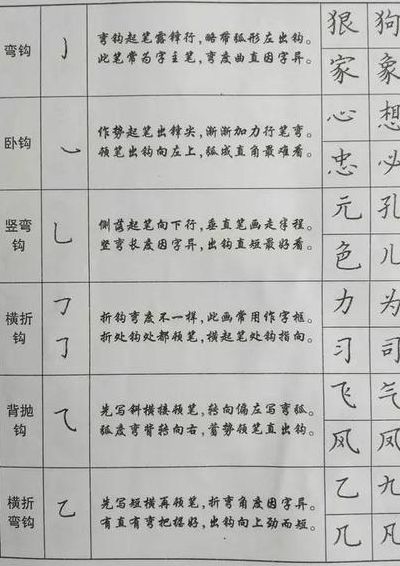 弯钩
㇁
弯钩起笔露锋行，略带弧形左出钩。
此笔常为字主笔，弯度曲直因字异。
狠 狗
家 象
卧钩
㇃
作势起笔出锋尖，渐渐加力行笔弯。
顿笔出钩向左上，弧成直角最难看。
心 想
忠 必
竖弯
钩
乚
侧落起笔向下行，垂直笔画走半程。
竖弯长度因字异，出钩直短最好看。
元 孔
色 儿
横折
钩
㇆
㇆
折钩弯度不一样，此画常用作字框。
折处钩处都顿笔，横起笔处钩指向。
力 为
习 司
背抛
钩
⺄
先写斜横接顿笔，转向偏左写弯弧。
弧度弯背转向右，蓄势顿笔直出钩。
飞 气
风 凤
横折
弯钩
乙
先写短横再顿笔，折弯角度因字异。
有直有弯把握好，出钩向上劲而短。
乙 九
几 凡